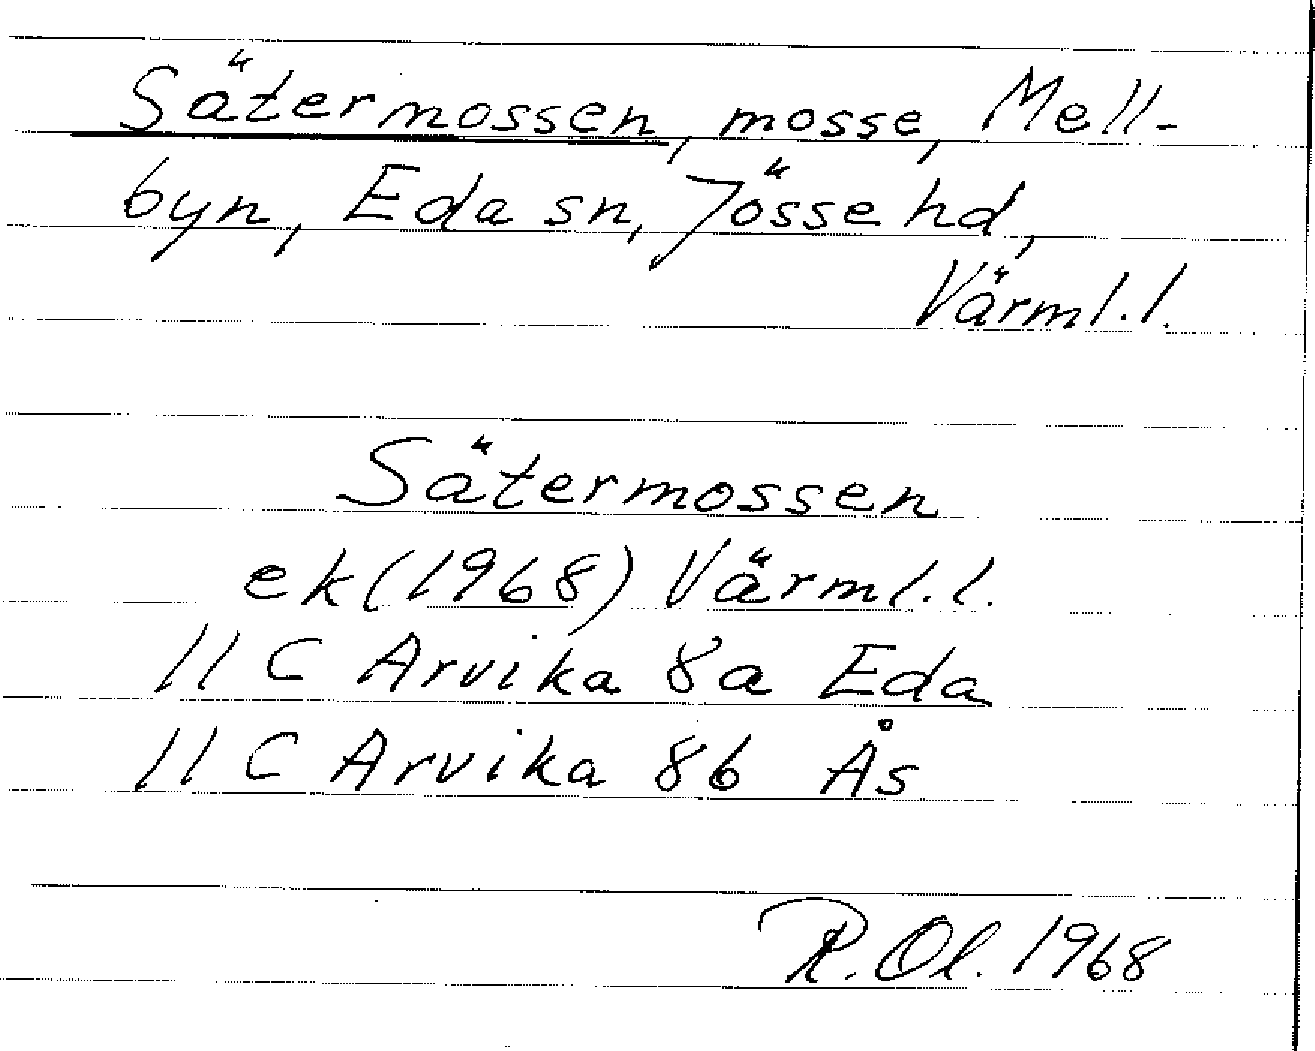 Sätermossen, mosse, Mell-
byn, Eda sn, Jösse hd,
Värml.l.
Sätermossen
ek (1968) Värml.l.
11 C Arvika 8a Eda
11 C Arvika 8b Ås
R. Ol. 1968